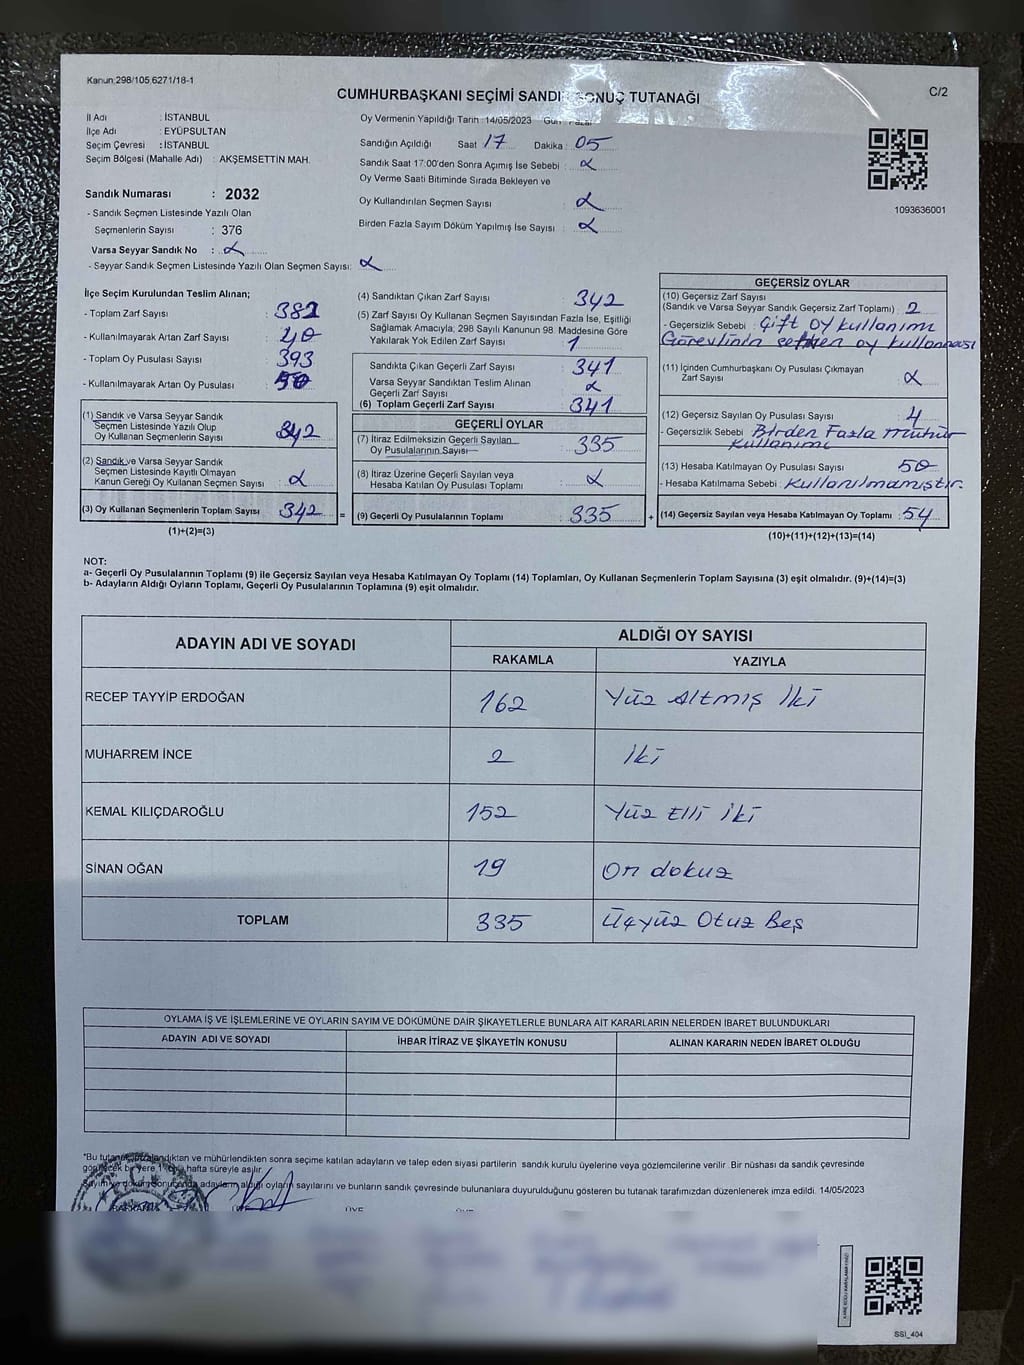 Kanun 298/105,6271/18-1
CUMHURBAŞKANI SEÇİMİ SANDIK SONUÇ TUTANAĞI
C/2
İl Adı : İSTANBUL
İlçe Adı : EYÜPSULTAN
Seçim Çevresi : İSTANBUL
Seçim Bölgesi (Mahalle Adı) : AKŞEMSETTİN MAH.
Sandık Numarası : 2032
- Sandık Seçmen Listesinde Yazılı Olan
Seçmenlerin Sayısı : 376
Varsa Seyyar Sandık No :
- Seyyar Sandık Seçmen Listesinde Yazılı Olan Seçmen Sayısı:
Oy Vermenin Yapıldığı Tarih :14/05/2023 Gün : Pazar
Sandığın Açıldığı Saat 17 Dakika : 05
Sandık Saat 17:00'den Sonra Açımış İse Sebebi :
Oy Verme Saati Bitiminde Sırada Bekleyen ve
Oy Kullandırılan Seçmen Sayısı :
Birden Fazla Sayım Döküm Yapılmış İse Sayısı :
1093636001
İlçe Seçim Kurulundan Teslim Alınan;
- Toplam Zarf Sayısı : 382
- Kullanılmayarak Artan Zarf Sayısı : 40
- Toplam Oy Pusulası Sayısı : 393
- Kullanılmayarak Artan Oy Pusulası : 50
(1) Sandık ve Varsa Seyyar Sandık
Seçmen Listesinde Yazılı Olup
Oy Kullanan Seçmenlerin Sayısı : 342
(2) Sandık ve Varsa Seyyar Sandık
Seçmen Listesinde Kayıtlı Olmayan
Kanun Gereği Oy Kullanan Seçmen Sayısı :
(3) Oy Kullanan Seçmenlerin Toplam Sayısı : 342 =
(1)+(2)=(3)
(4) Sandıktan Çıkan Zarf Sayısı : 342
(5) Zarf Sayısı Oy Kullanan Seçmen Sayısından Fazla İse, Eşitliği
Sağlamak Amacıyla, 298 Sayılı Kanunun 98. Maddesine Göre
Yakılarak Yok Edilen Zarf Sayısı : 1
Sandıkta Çıkan Geçerli Zarf Sayısı : 341
Varsa Seyyar Sandıktan Teslim Alınan
Geçerli Zarf Sayısı :
(6) Toplam Geçerli Zarf Sayısı : 341
GEÇERLİ OYLAR
(7) İtiraz Edilmeksizin Geçerli Sayılan
Oy Pusulalarının Sayısı : 335
(8) İtiraz Üzerine Geçerli Sayılan veya
Hesaba Katılan Oy Pusulası Toplamı :
(9) Geçerli Oy Pusulalarının Toplamı : 335 +
GEÇERSİZ OYLAR
(10) Geçersiz Zarf Sayısı
(Sandık ve Varsa Seyyar Sandık Geçersiz Zarf Toplamı) : 2
- Geçersizlik Sebebi : Çift oy kullanımı
Görevlinin oy kullanması
(11) İçinden Cumhurbaşkanı Oy Pusulası Çıkmayan
Zarf Sayısı :
(12) Geçersiz Sayılan Oy Pusulası Sayısı : 4
- Geçersizlik Sebebi : Birden Fazla mühür
kullanımı
(13) Hesaba Katılmayan Oy Pusulası Sayısı : 50
- Hesaba Katılmama Sebebi : Kullanılmamıştır.
(14) Geçersiz Sayılan veya Hesaba Katılmayan Oy Toplamı : 54
(10)+(11)+(12)+(13)=(14)
NOT:
a- Geçerli Oy Pusulalarının Toplamı (9) ile Geçersiz Sayılan veya Hesaba Katılmayan Oy Toplamı (14) Toplamları, Oy Kullanan Seçmenlerin Toplam Sayısına (3) eşit olmalıdır. (9)+(14)=(3)
b- Adayların Aldığı Oyların Toplamı, Geçerli Oy Pusulalarının Toplamına (9) eşit olmalıdır.
ADAYIN ADI VE SOYADI
ALDIĞI OY SAYISI
RAKAMLA YAZIYLA
RECEP TAYYİP ERDOĞAN 162 Yüz Altmış İki
MUHARREM İNCE 2 İki
KEMAL KILIÇDAROĞLU 152 Yüz Elli İki
SİNAN OĞAN 19 On dokuz
TOPLAM 335 Üçyüz Otuz Beş
OYLAMA İŞ VE İŞLEMLERİNE VE OYLARIN SAYIM VE DÖKÜMÜNE DAİR ŞİKAYETLERLE BUNLARA AİT KARARLARIN NELERDEN İBARET BULUNDUKLARI
ADAYIN ADI VE SOYADI İHBAR İTİRAZ VE ŞİKAYETİN KONUSU ALINAN KARARIN NEDEN İBARET OLDUĞU
"Bu tutanak imzalandıktan ve mühürlendikten sonra seçime katılan adayların ve talep eden siyasi partilerin sandık kurulu üyelerine veya gözlemcilerine verilir. Bir nüshası da sandık çevresinde
görülecek bir yere 1 hafta süreyle asılır.
Sayım ve döküm sonucunda adayların aldığı oyların sayılarını ve bunların sandık çevresinde bulunanlara duyurulduğunu gösteren bu tutanak tarafımızdan düzenlenerek imza edildi. 14/05/2023
BAŞKAN ÜYE ÜYE
SSI_404